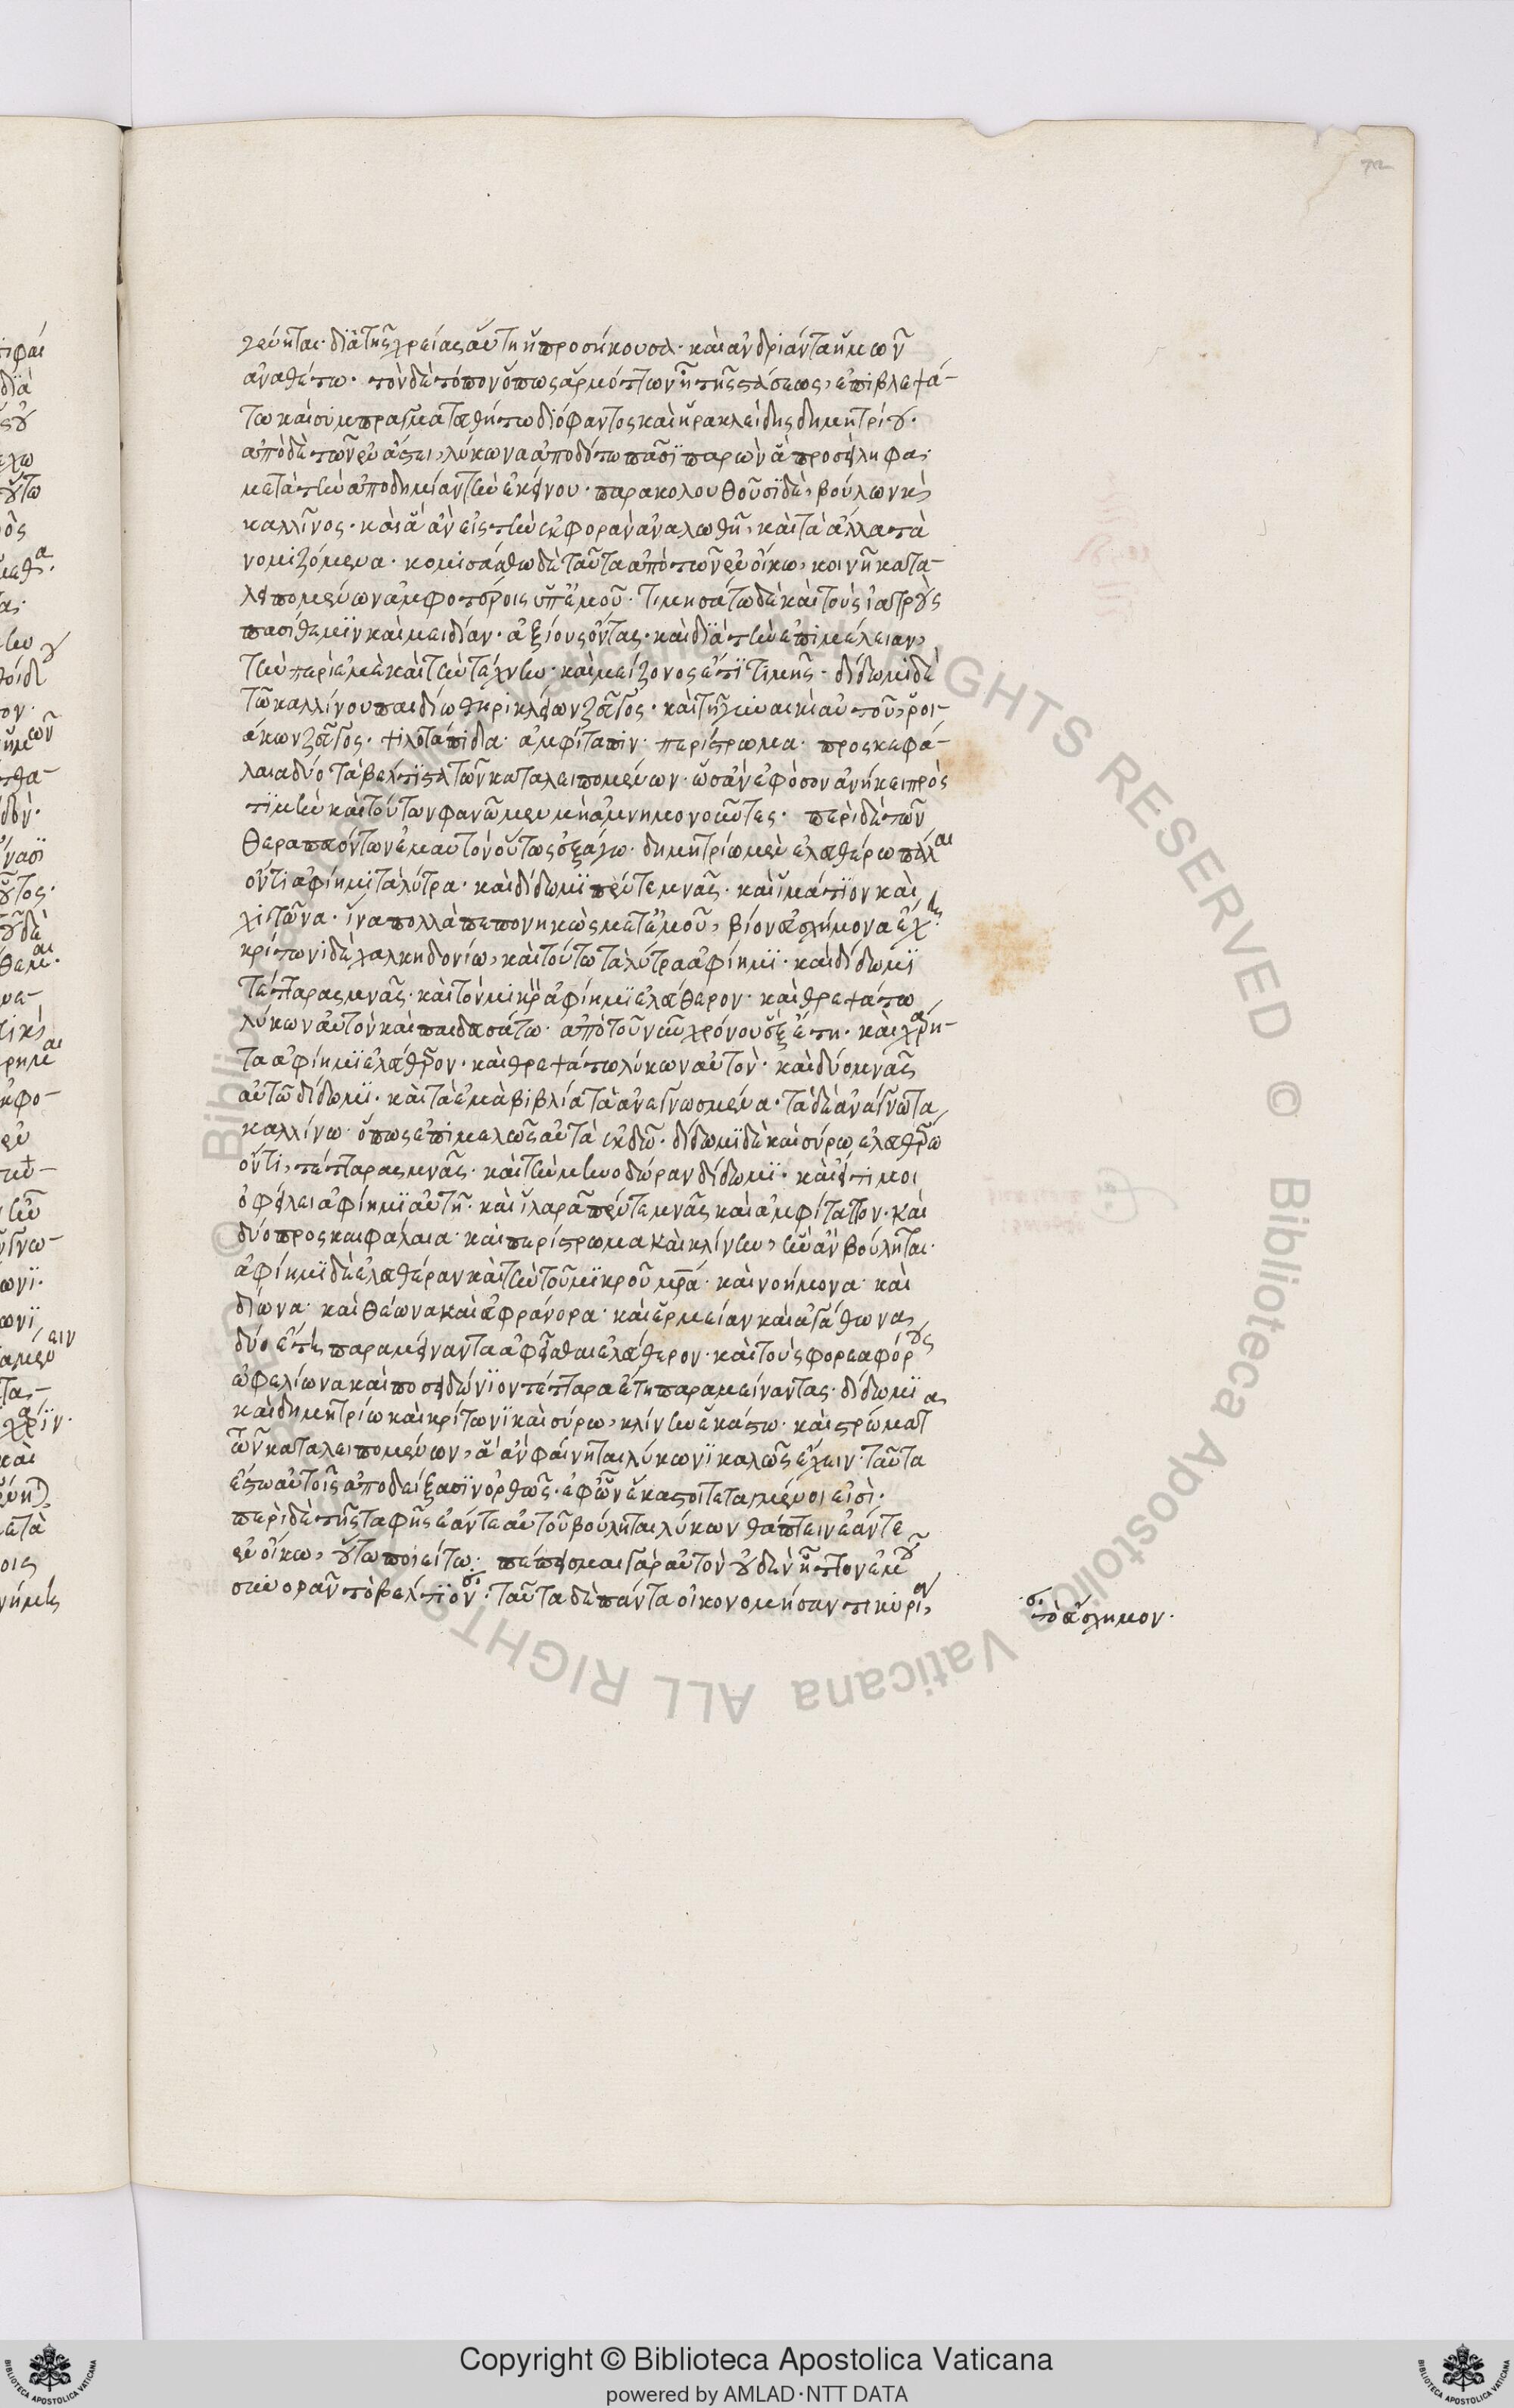 γένηται διὰ τῆς χρείας αὕτη ἡ προσήκουσα· καὶ ἀνδριάντα ἡμῶν
ἀναθέτω· τὸν δὲ τόπον ὅπως ἁρμόττων ᾖ τῆς στάσεως, ἐπιβλεψά-
τω καὶ συμπραγματευθήτω διόφαντος καὶ ἡρακλείδης δημητρίου·
ἀπὸ δὲ τῶν ἐν ἄστει, λύκων ἀποδότω πᾶσι παρ' ὧν ἃ προείληφα·
μετὰ τὴν ἀποδημίαν τὴν ἐκείνου· παρακολουθοῦσι δὲ, βούλων καὶ
καλλῖνος· καὶ ἃ ἂν εἰς τὴν ἐκφορὰν ἀναλωθῇ, καὶ τὰ ἄλλα τὰ
νομιζόμενα· κομισάσθω δὲ ταῦτα ἀπὸ τῶν ἐν οἴκω, κοινῇ κατα-
λειπομένων ἀμφοτέροις ὑπ' ἐμοῦ· τιμησάτω δὲ καὶ τοὺς ἰατροὺς
πασίθεμιν καὶ μειδίαν· ἀξίους ὄντας· καὶ διὰ τὴν ἐπιμέλειαν,
τὴν περὶ ἐμὲ καὶ τὴν τέχνην· καὶ μείζονος ἔτι τιμῆς· δίδωμι δὲ
τῶ καλλίνου παιδίω θηρικλείων ζεῦγος· καὶ τῇ γυναικὶ αὐτοῦ, ῥοι-
άκων ζεῦγος· ψιλοτάπιδα· ἀμφίταπιν· περίστρωμα· προσκεφά-
λαια δύο τὰ βέλτιστα τῶν καταλειπομένων· ὡς ἂν ἐφόσον ἀνήκει πρὸς
τιμὴν καὶ τούτων φανῶμεν μὴ ἀμνημονοῦντες· περὶ δὲ τῶν
θεραπευόντων ἐμαυτὸν οὕτως ἐξάγω· δημητρίω μὲν ἐλευθέρω πάλαι
ὄντι ἀφίημι τὰ λύτρα· καὶ δίδωμι πέντε μνᾶς· καὶ ἱμάτιον καὶ
χιτῶνα· ἵνα πολλὰ πεπονηκὼς μετ' ἐμοῦ, βίον εὐσχήμονα ἔχῃ·
κρίτωνι δὲ χαλκηδονίω, καὶ τούτω τὰ λύτρα ἀφίημι· καὶ δίδωμι
τέτταρας μνᾶς· καὶ τὸν μικρὸν ἀφίημι ἐλεύθερον· καὶ θρεψάτω
λύκων αὐτὸν καὶ παιδευσάτω· ἀπὸ τοῦ νῦν χρόνου ἓξ ἔτη· καὶ χάρη-
τα ἀφίημι ἐλεύθερον· καὶ θρεψάτω λύκων αὐτὸν· καὶ δύο μνᾶς
αὐτῶ δίδωμι· καὶ τὰ ἐμὰ βιβλία τὰ ἀνεγνωσμένα· τὰ δὲ ἀνάγνωτα,
καλλίνω· ὅπως ἐπιμελῶς αὐτὰ ἐκδῶ· δίδωμι δὲ καὶ σύρω ἐλευθέρω
ὄντι, τέτταρας μνᾶς· καὶ τὴν μηνοδώραν δίδωμι· καὶ εἴ τι μοι
ὀφείλει ἀφίημι αὐτῇ· καὶ ἱλαρᾶ πέντε μνᾶς καὶ ἀμφίταπον· καὶ
δύο προσκαιφάλαια· καὶ περίστρωμα καὶ κλίνην, ἣν ἂν βούληται·
ἀφίημι δὲ ἐλευθέραν καὶ τὴν τοῦ μικροῦ μητέρα· καὶ νοήμονα· καὶ
δίωνα· καὶ θέωνα καὶ εὐφράνορα· καὶ ἑρμείαν καὶ ἀγάθωνα,
δύο ἔτη παραμείναντα ἀφεῖσθαι ἐλεύθερον· καὶ τοὺς φορεαφόρους
ὠφελίωνα καὶ ποσειδώνιον τέτταρα ἔτη παραμείναντας· δίδωμι
καὶ δημητρίω καὶ κρίτωνι καὶ σύρω, κλίνην ἑκάστω· καὶ στρώματα
τῶν καταλειπομένων, ἃ ἂν φαίνηται λύκωνι καλῶς ἔχειν· ταῦτα
ἔστω αὐτοῖς ἀποδείξασιν ὀρθῶς· ἐφ' ὧν ἕκαστοι τεταγμένοι εἰσὶ·
περὶ δὲ τῆς ταφῆς ἐάν τε αὐτοῦ βούληται λύκων θάπτειν ἐάν τε
ἐν οἴκω, οὕτω ποιείτω· πέπεισμαι γὰρ αὐτὸν οὐδὲν ἧττον ἐμοῦ
συνορᾶν τὸ βέλτιον· ταῦτα δὲ πάντα οἰκονομήσαντι κύριον,
τὸ εὔσχημον·
Copyright © Biblioteca Apostolica Vaticana
powered by AMLAD·NTT DATA